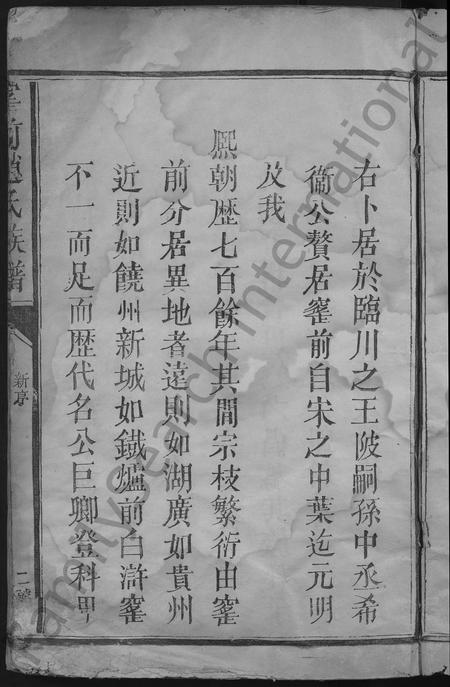 右卜居於臨川之王陂嗣孫中丞希
衞公贅居窰前自宋之中葉迄元明
及我
熈朝歴七百餘年其間宗枝繁衍由窰
前分居異地者逺則如湖廣如貴州
近則如饒州新城如鐡爐前白滸窰
不一而足而歴代名公巨卿登科甲
窰前趙氏族譜
新序
二
FamilySearch International